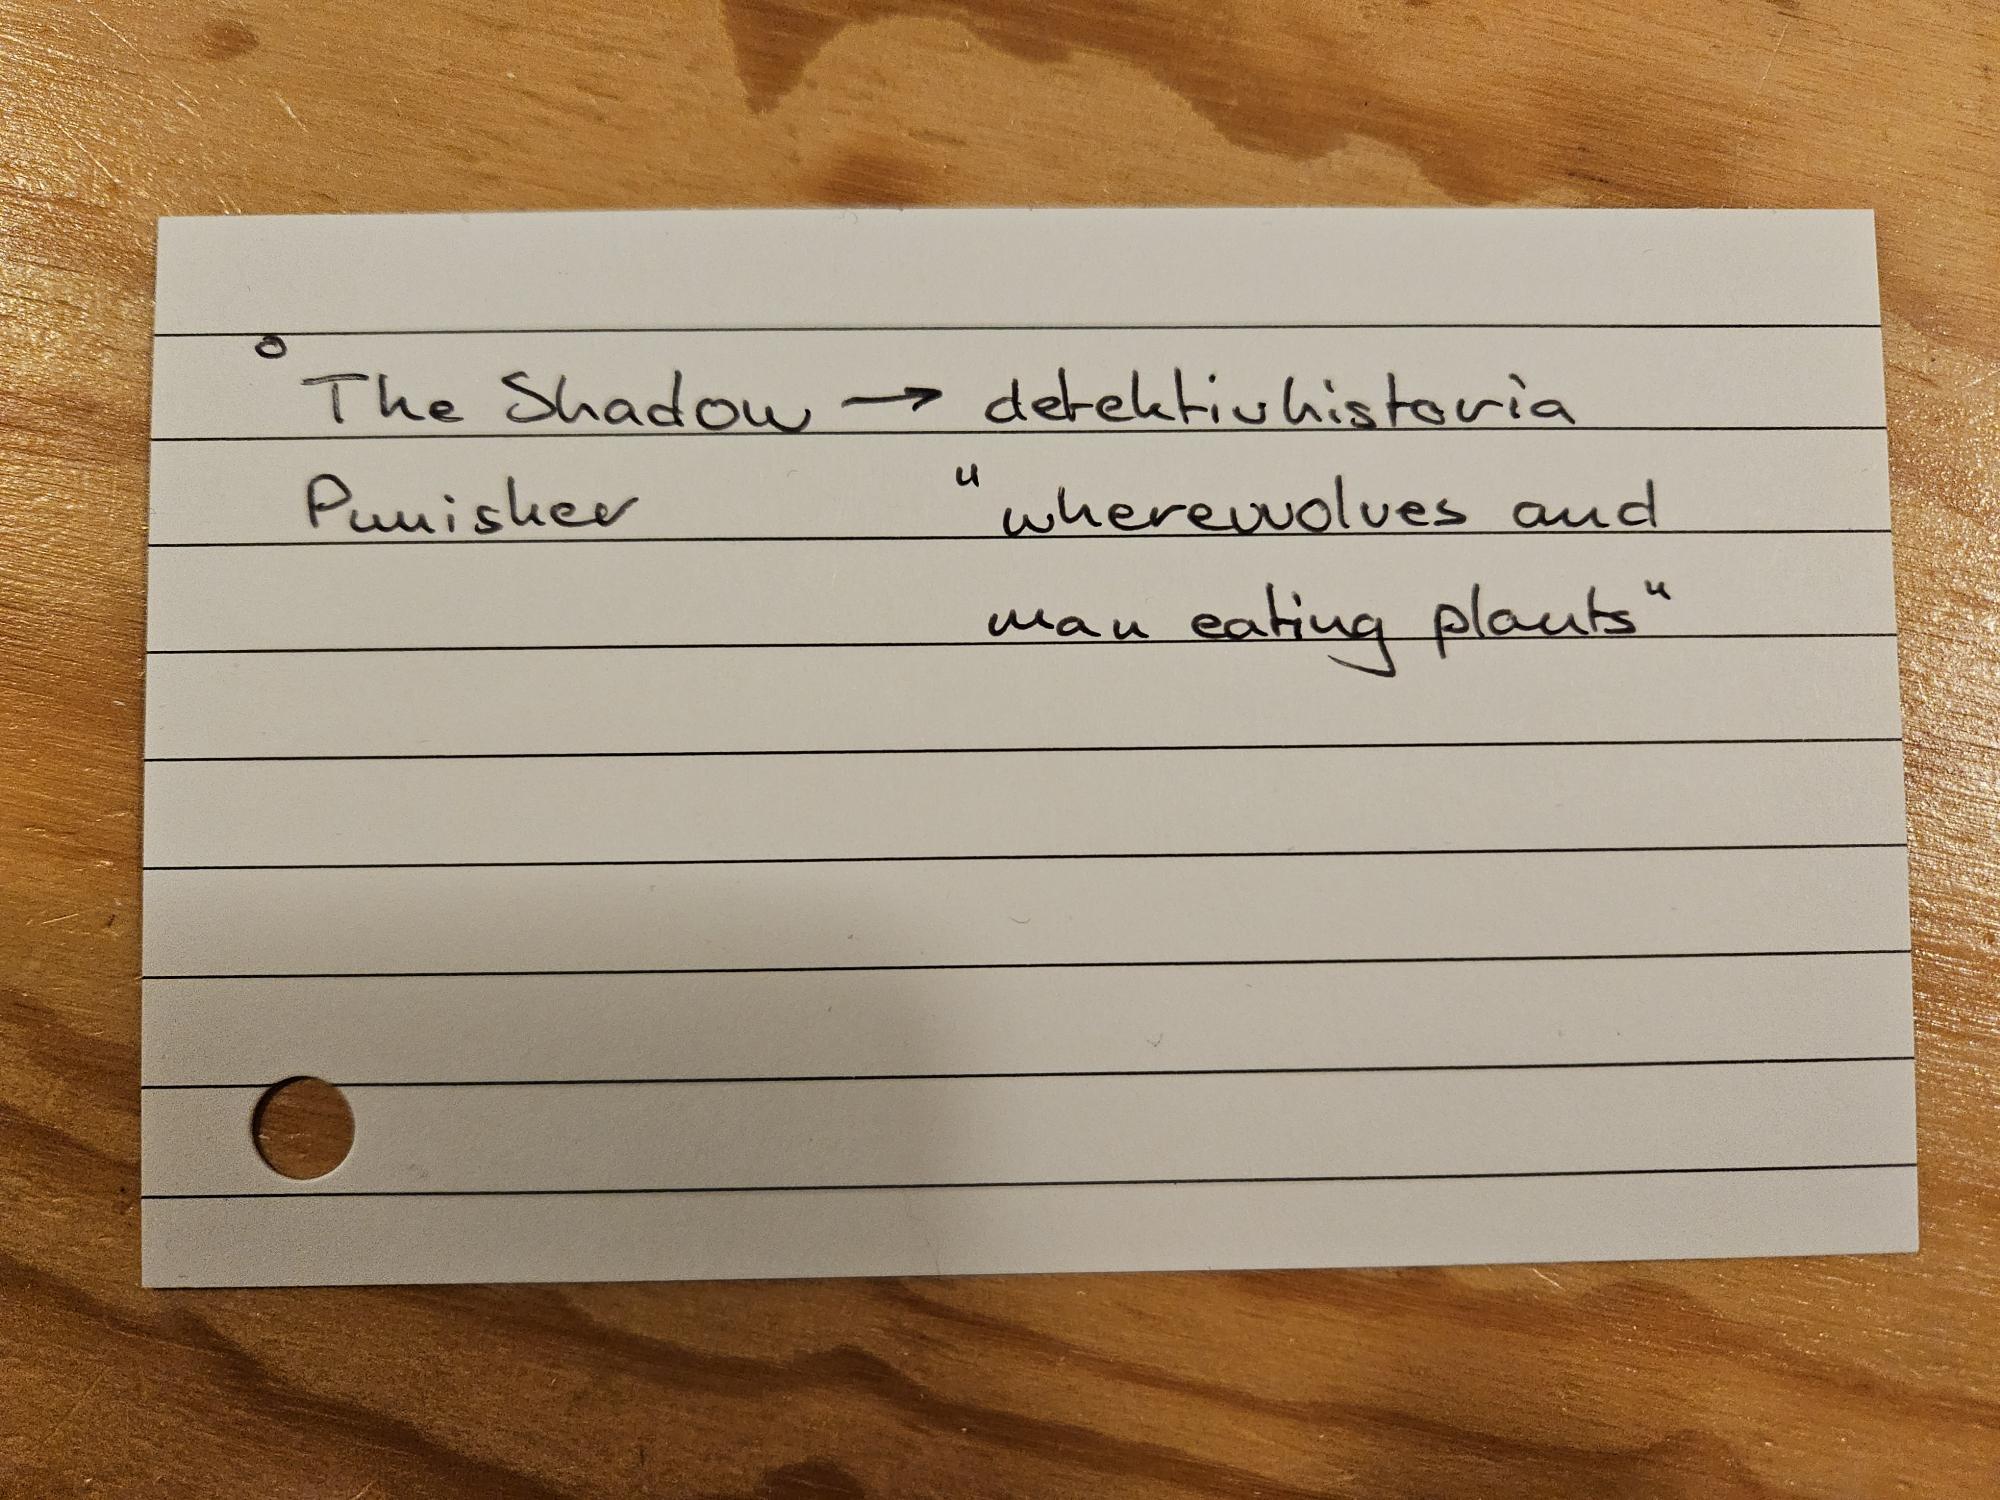 ° The Shadow → detektivhistoria
Punisher "wherewolves and
man eating plants"